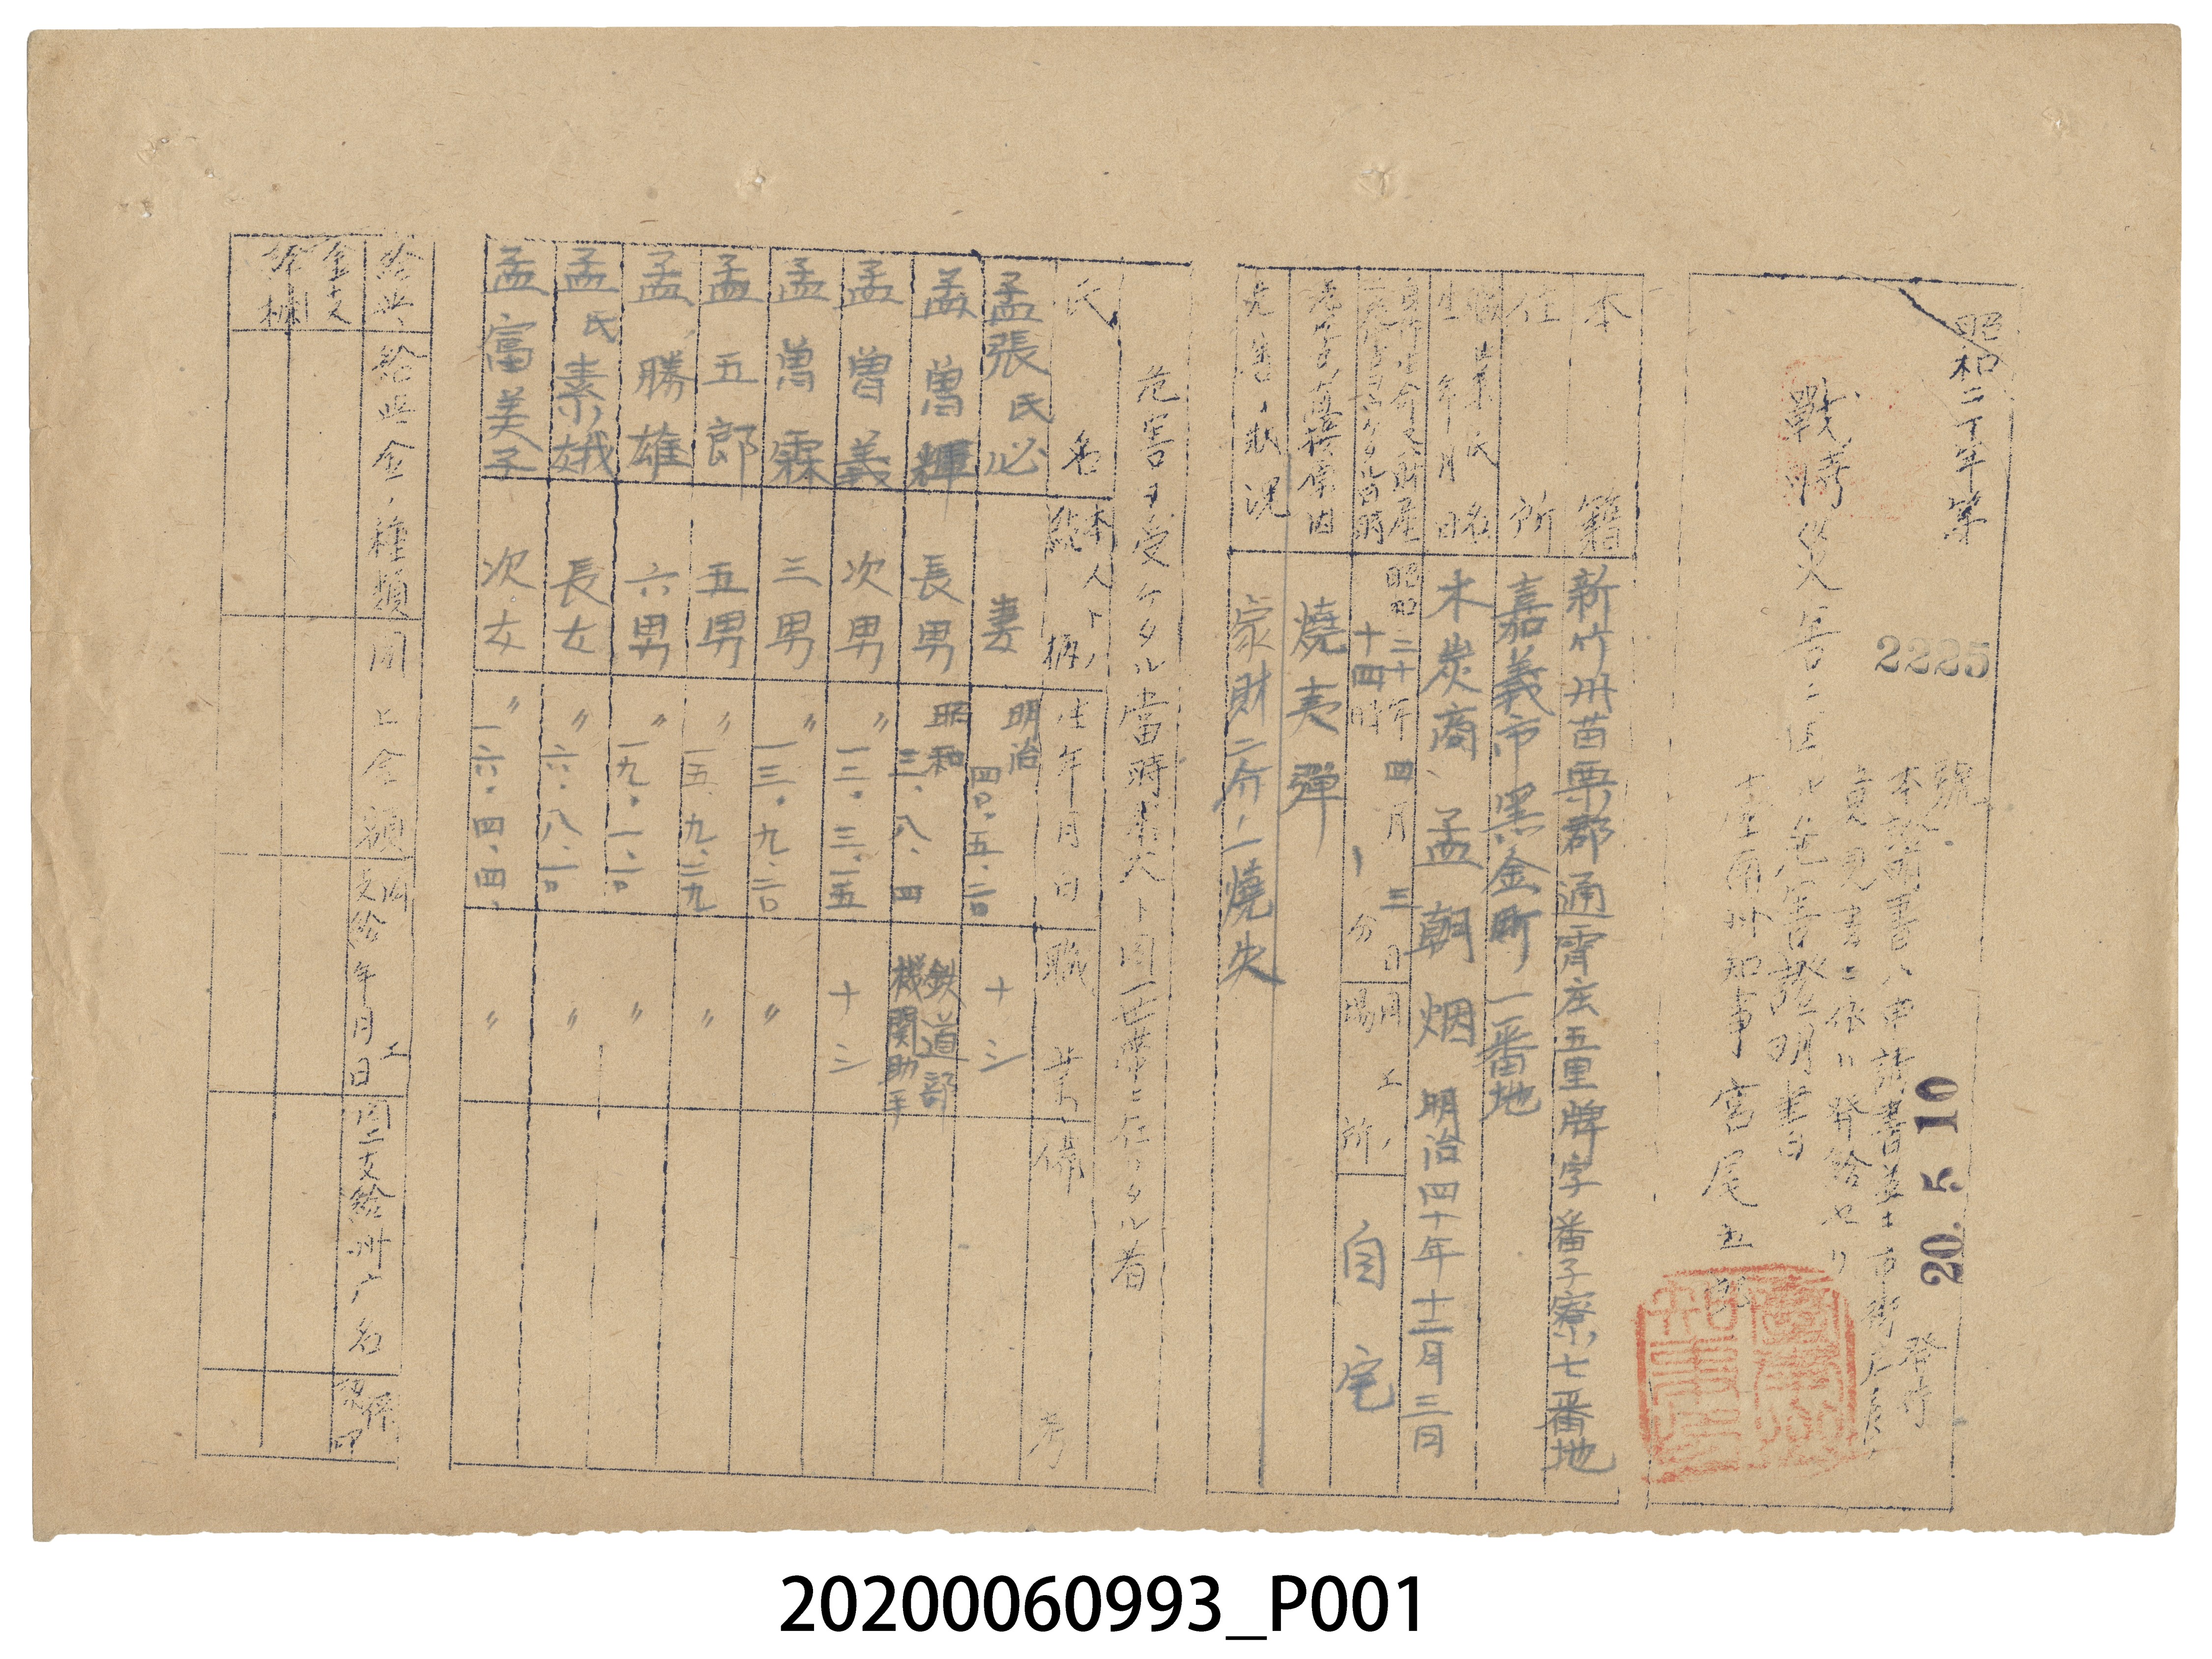 昭和二十年第 2225 號
20. 5. 10 發付
本證明書ハ申請書並ニ市街庄長ノ
意見書ニ依リ發給セリ
戰時災害ニ因ル危害證明書
臺南州知事 宮尾五郎
本籍 新竹州苗栗郡通霄庄五里牌字番子寮七番地
住所 嘉義市黑金町一一番地
職業氏名 生年月日 木炭商、孟朝烟 明治四十年十二月三日
昭和二十年四月三日
十四時 分
同上ノ場所 自宅
直接原因 燒夷彈
危害ノ狀況 家財二分ノ一燒失
危害ヲ受ケタル當時本人ト同一世帶ニ在リタル者
氏名 本人トノ續柄 生年月日 職業 備考
孟張氏必 妻 明治四〇、五、二〇 ナシ
孟曾輝 長男 昭和三、八、四 鉄道部機関助手
孟曾義 次男 〃 一三、三、一五 ナシ
孟曾霖 三男 〃 一三、九、二〇 〃
孟五郎 五男 〃 一五、九、二九 〃
孟勝雄 六男 〃 一九、一、二〇 〃
孟氏素娥 長女 〃 六、八、二〇 〃
孟富美子 次女 〃 一六、四、四、 〃
給與金支給欄
給與金ノ種類 同上金額 同上支給年月日 同上支給州广名 係契印
20200060993_P001